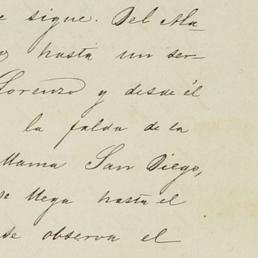 e sigue. Del Ma-
hasta un ser-
Lorenzo y desde él
la falda de la
llama San Diego,
se llega hasta el
se observa el